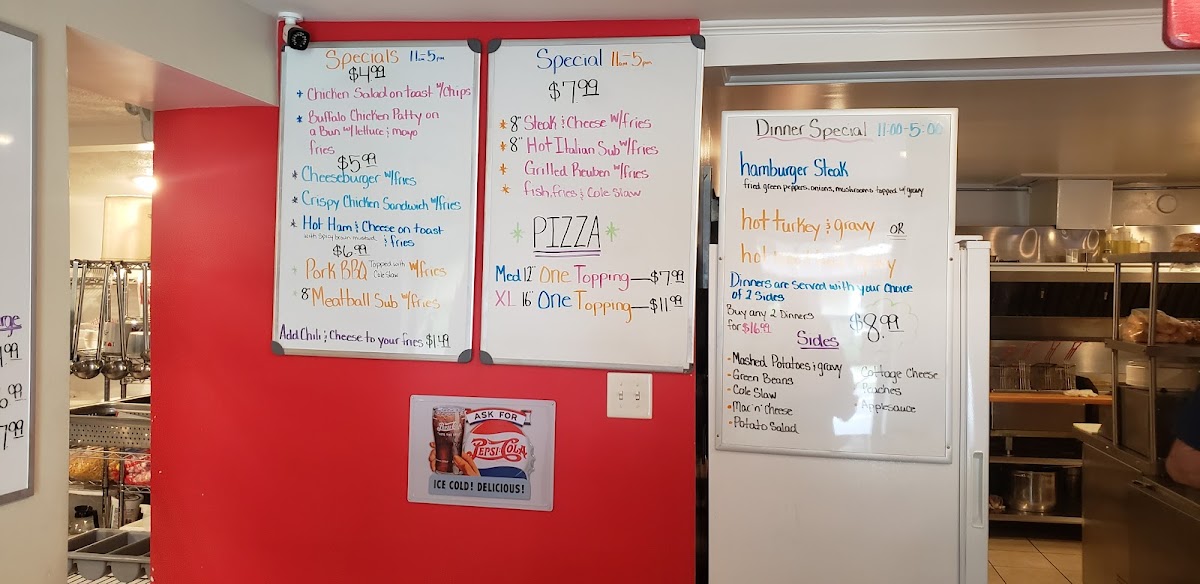 Specials 11am-5pm
$4.99
* Chicken Salad on toast w/chips
* Buffalo Chicken Patty on
a Bun w/lettuce & mayo
fries
$5.99
* Cheeseburger w/fries
* Crispy Chicken Sandwich w/fries
* Hot Ham & Cheese on toast
with spicy brown mustard & fries
$6.99
* Pork BBQ Topped with Cole Slaw w/fries
* 8" Meatball Sub w/fries
Add Chili & Cheese to your fries $1.49
Special 11am-5pm
$7.99
* 8" Steak & Cheese w/fries
* 8" Hot Italian Sub w/fries
* Grilled Reuben w/fries
* fish, fries & Cole Slaw
* PIZZA *
Med 12" One Topping — $7.99
XL 16" One Topping — $11.99
Dinner Special 11:00-5:00
hamburger Steak
fried green peppers, onions, mushrooms topped w/ gravy
hot turkey & gravy OR
hot
Dinners are served with your choice
of 2 Sides
Buy any 2 Dinners
for $16.99
$8.99
Sides
- Mashed Potatoes & gravy
- Green Beans
- Cole Slaw
- Mac 'n' Cheese
- Potato Salad
Cottage Cheese
Peaches
Applesauce
ASK FOR
PEPSI-COLA
ICE COLD! DELICIOUS!
.99
.99
7.99